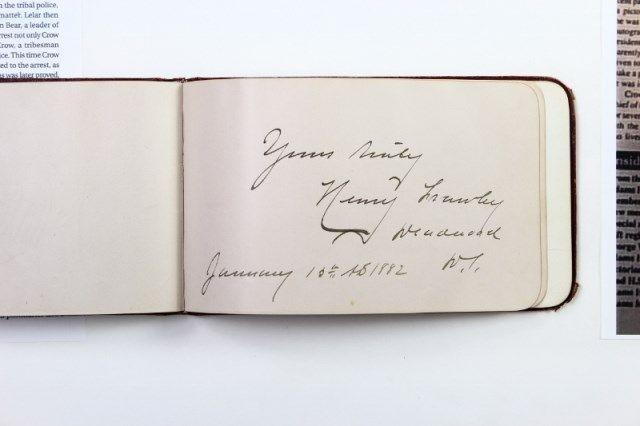 n the tribal police,
matter. Lelar then
n Bear, a leader of
rrest not only Crow
Crow, a tribesman
ice. This time Crow
ed to the arrest, as
s was later proved.
Yours truly
Henry Frawley
Deadwood
D.T.
January 10th AD 1882